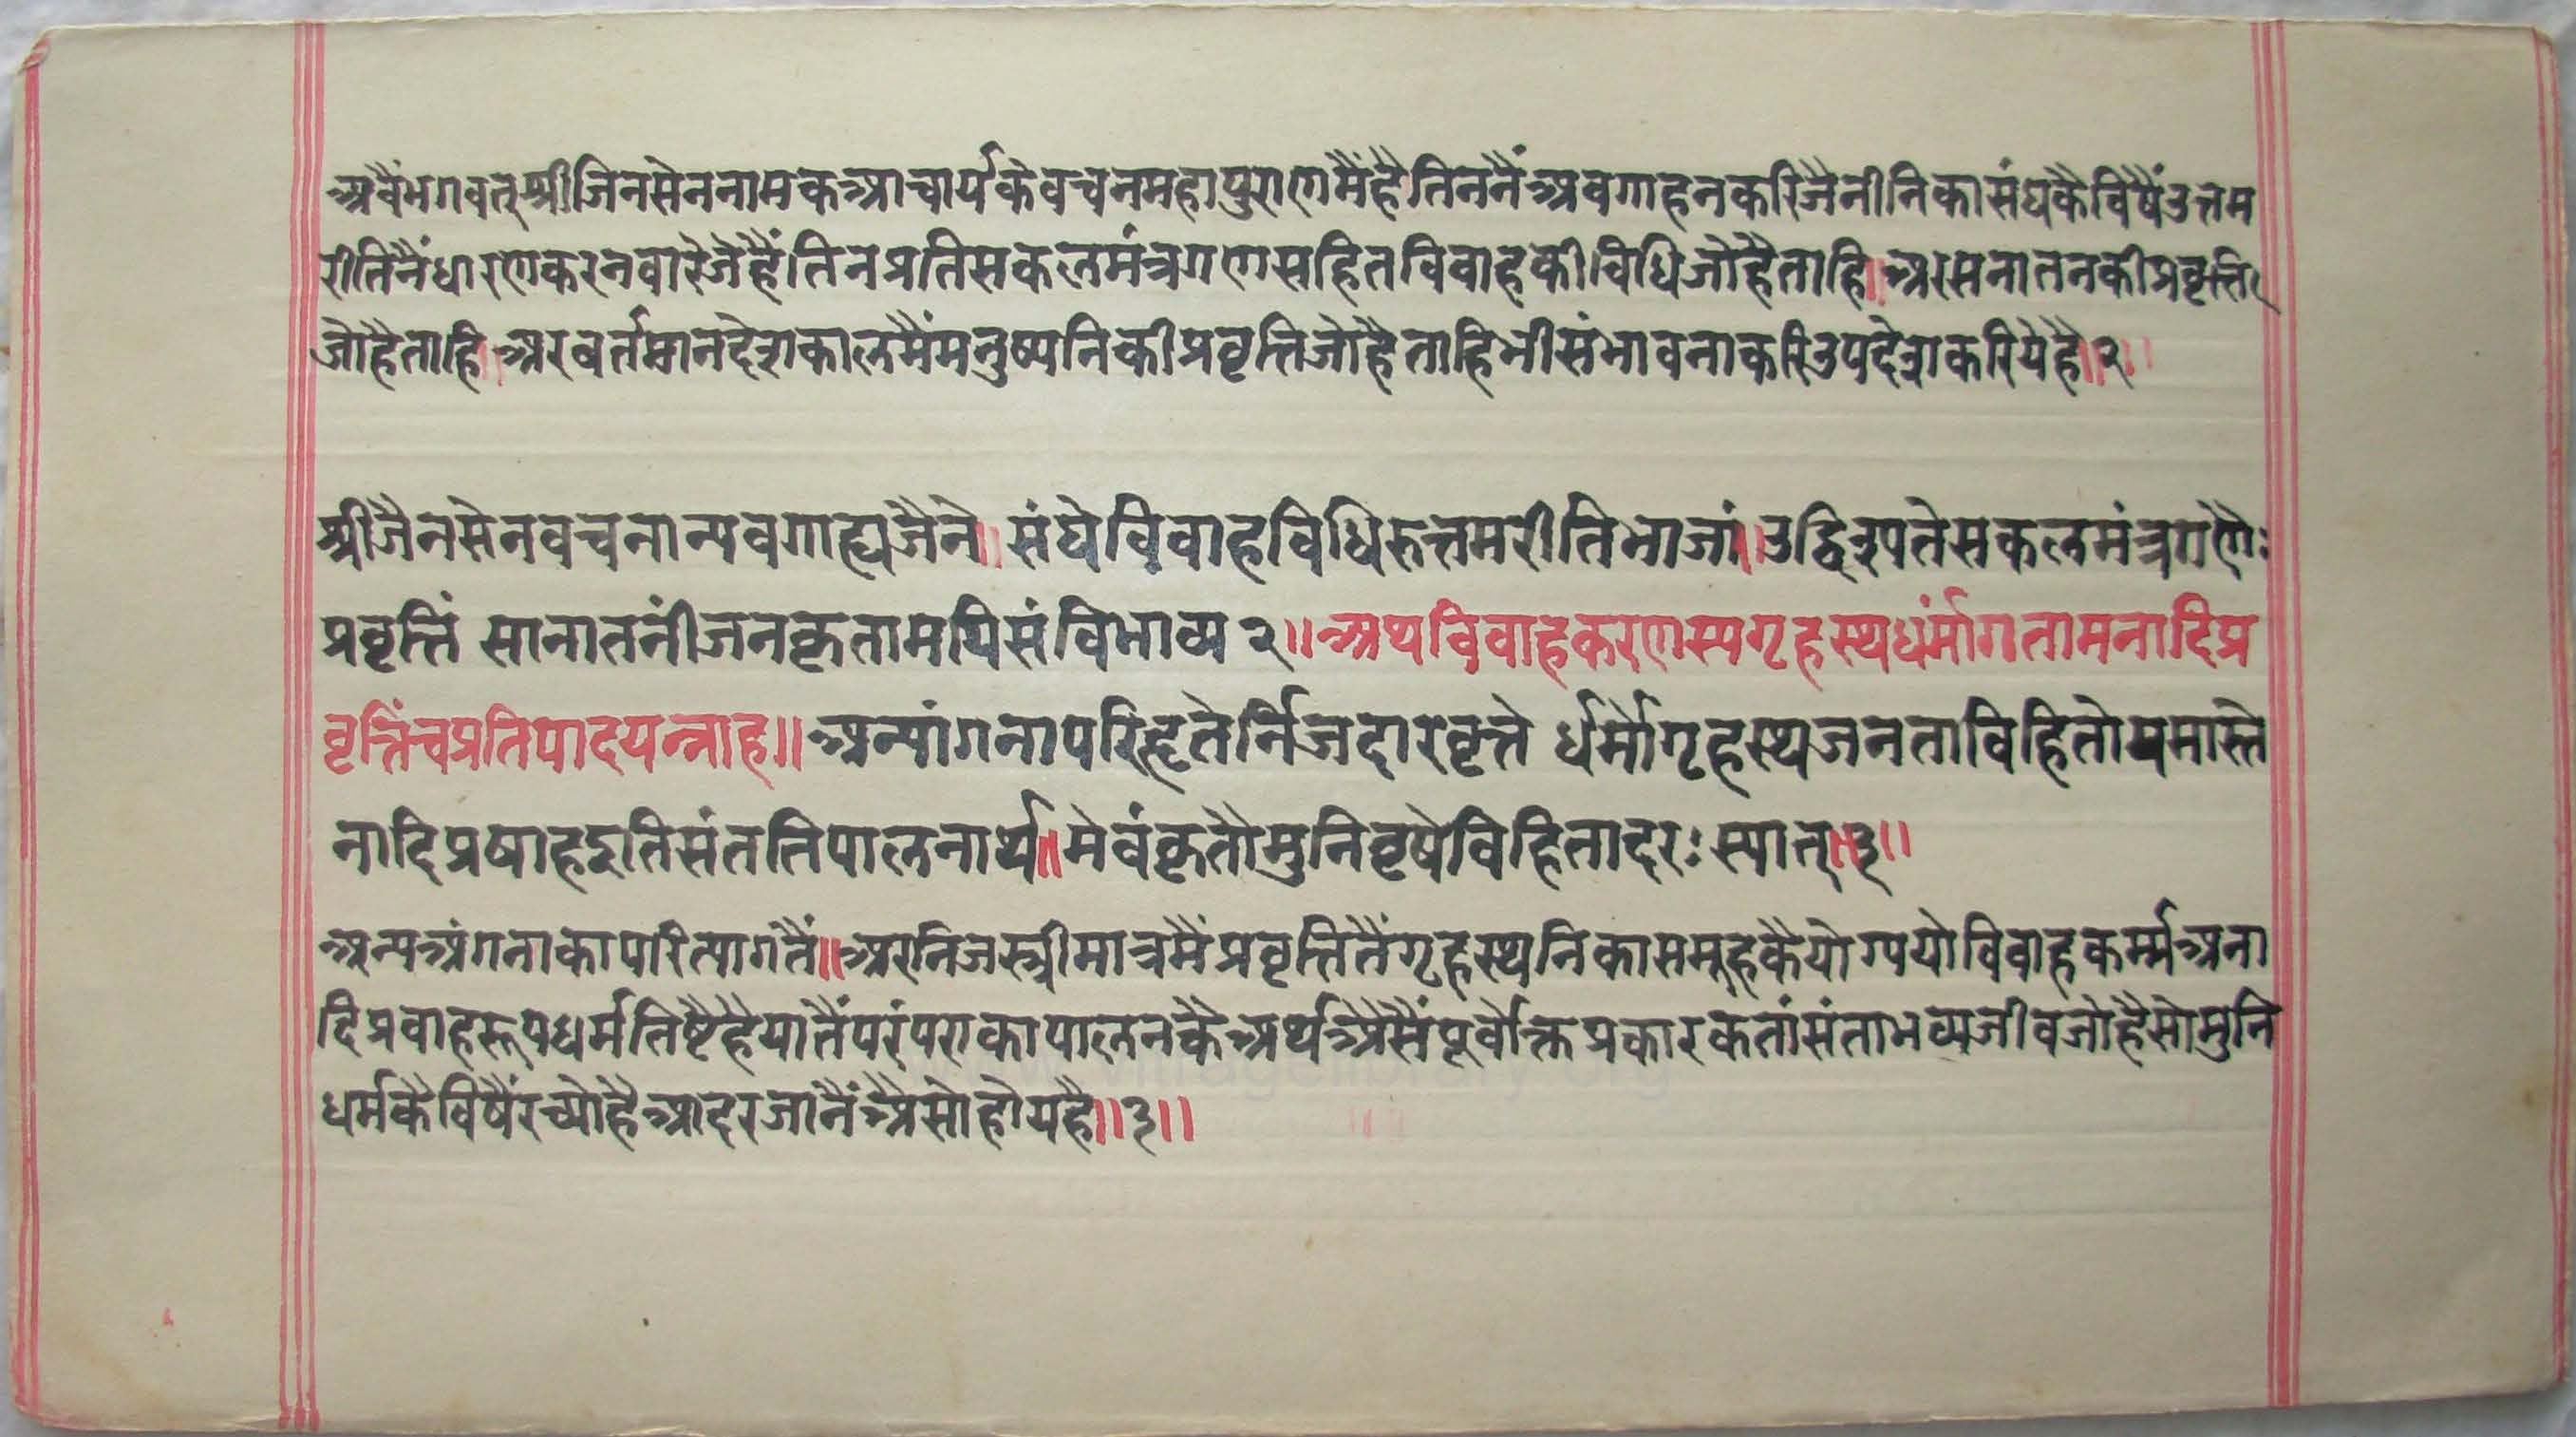 अवैंभगवत्श्रीजिनसेननामकआचार्यकेवचनमहापुराणमैंहैतिननैंअवगाहनकरिजैनीनिकासंघकैविषैंउत्तम
रीतिनैंधारणकरनवारेजेहैं।तिनप्रतिसकलमंत्रगणसहितविवाहकीविधिजोहैताहि।अरसनातनकीप्रवृत्ति
जोहैताहि।अरवर्तमानदेशकालमैंमनुष्यनिकीप्रवृत्तिजोहैताहिभीसंभावनाकरिउपदेशकरियेहै॥२॥
श्रीजैनसेनवचनान्यवगाह्यजैने॥संघेविवाहविधिरुत्तमरीतिभाजां॥उद्दिश्यतेसकलमंत्रगणैः
प्रवृत्तिं सानातनींजनकृतामपिसंविभाव्य२॥अथविवाहकरणस्यगृहस्थधंर्मागतामनादिप्र
वृत्तिंचप्रतिपादयन्नाह॥अन्यांगनापरिहृतेर्निजदारवृत्ते र्धर्मोगृहस्थजनताविहितोयमास्ते
नादिप्रषाहइतिसंततिपालनार्थ॥मेवंकृतौमुनिवृषेविहितादरःस्यात्॥३॥
अन्यअंगनाकापरित्यागतैं॥अरुनिजस्त्रीमात्रमैंप्रवृत्तितैंगृहस्थनिकासमूहकैयोग्ययोविवाहकर्म्मअना
दिप्रवाहरूपधर्मतिष्टैहैयातैंपरंपराकापालनकैअर्थअैसैंपूर्वोक्तप्रकारकर्तासंताभव्यजीवजोहैसोमुनि
धर्मकैविषैंरच्योहैआदरजानैंअैसोहोयहै॥३॥